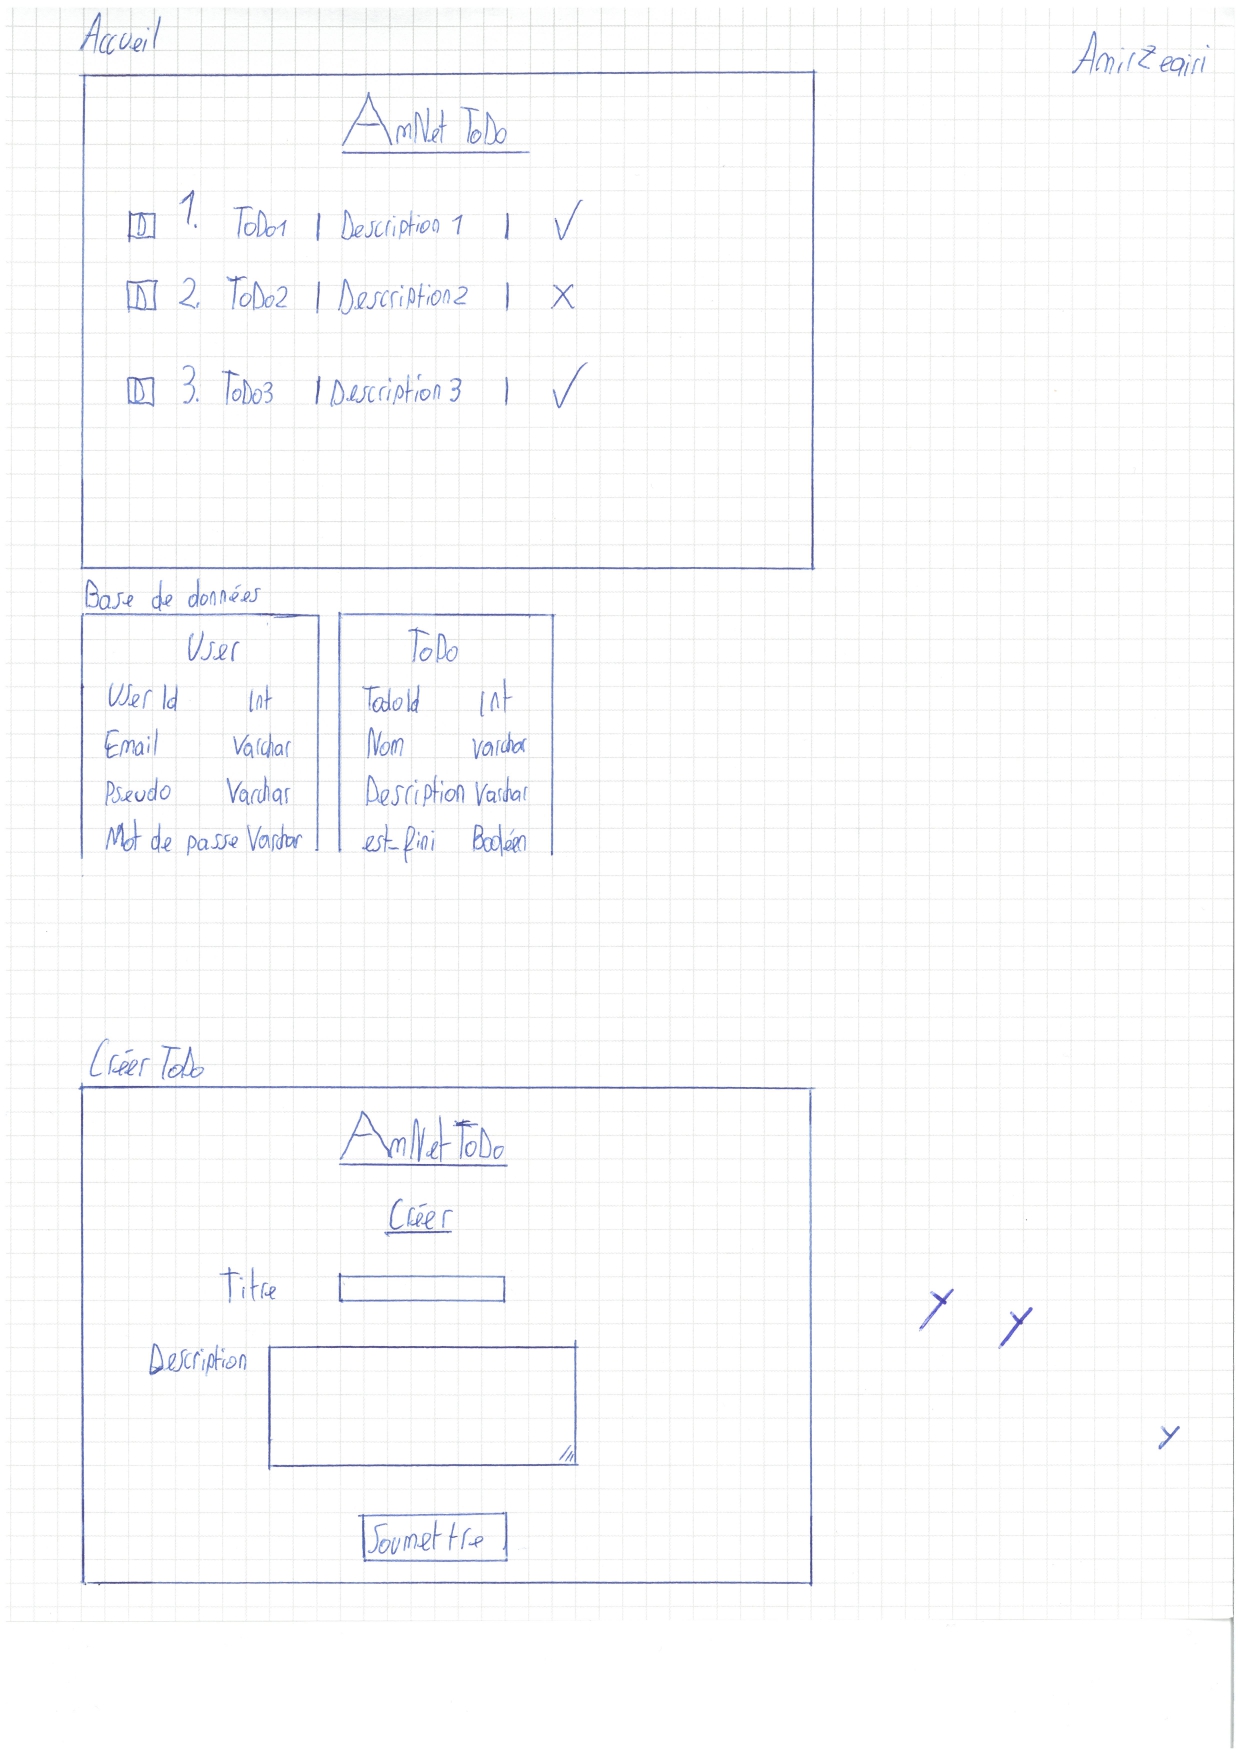 Accueil
Amir Zeqiri
AmNet ToDo
D 1. ToDo1 | Description 1 | ✓
D 2. ToDo2 | Description2 | X
D 3. ToDo3 | Description 3 | ✓
Base de données
User
User Id Int
Email Varchar
Pseudo Varchar
Mot de passe Varchar
ToDo
TodoId Int
Nom varchar
Description Varchar
est_fini Booléen
Créer ToDo
AmNet ToDo
Créer
Titre
Description
Soumettre